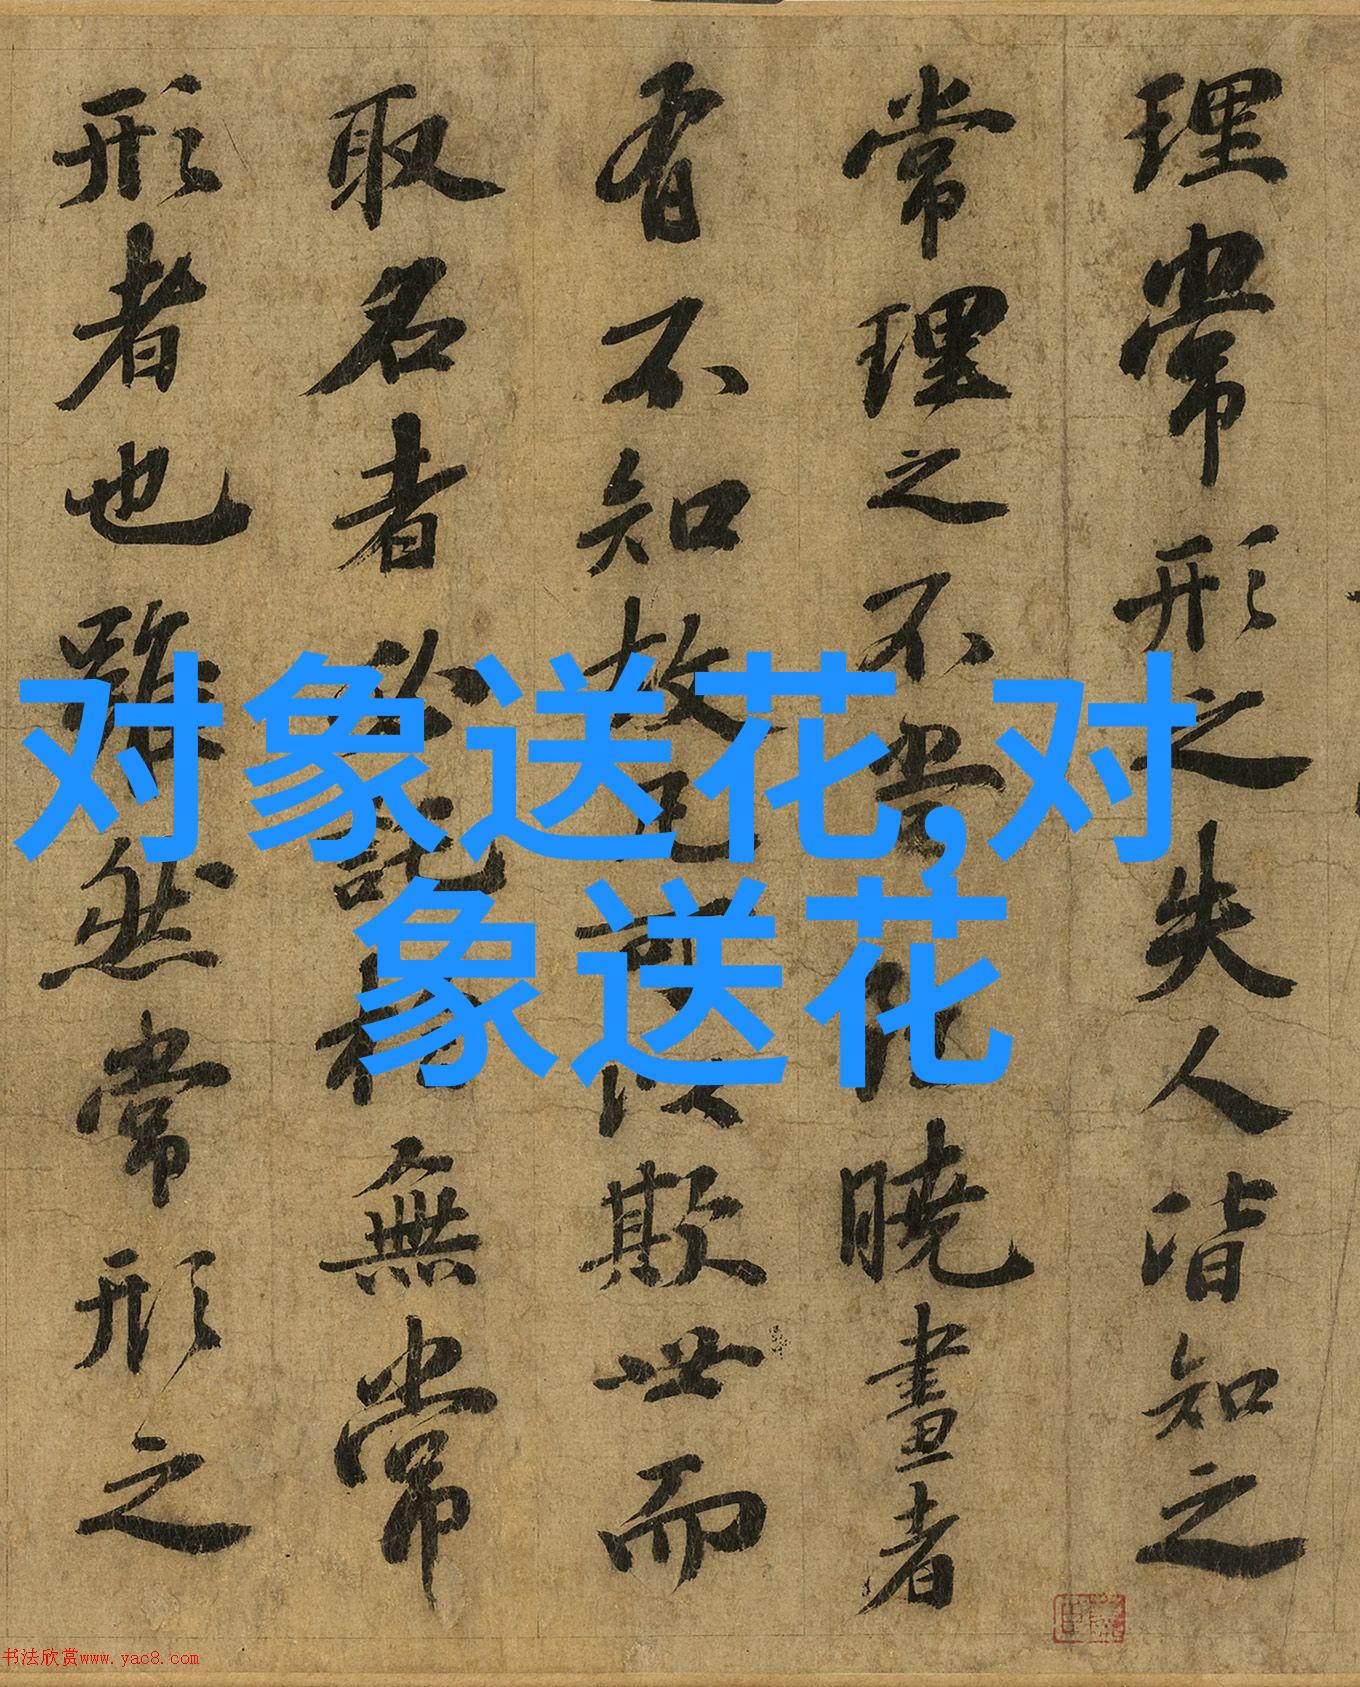 理常形之失人皆知之
常理之不當曉畫者
有不知故欺世而
取名者必託於無常
形者也雖然常形之
对象送花,对
象送花
书法欣赏www.yac8.com